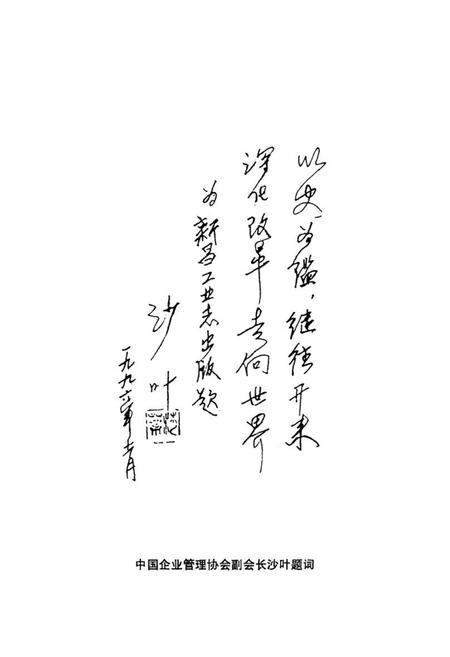 以史为鑑，继往开来
深化改革 走向世界
为新昌工业志出版题
沙叶
一九九六年七月
中国企业管理协会副会长沙叶题词